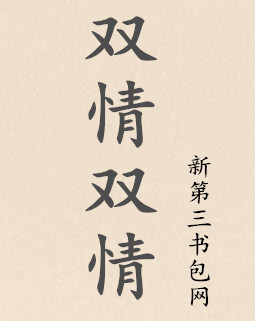 双情双情
新第三书包网